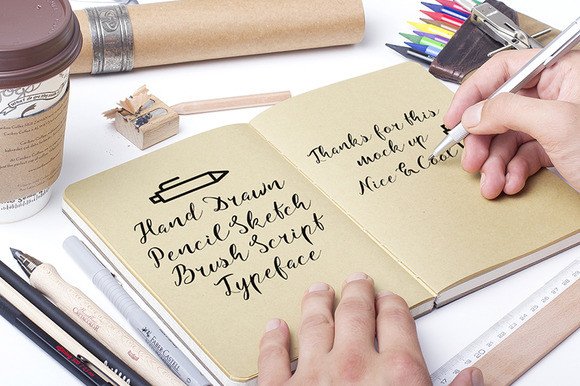 Hand Drawn
Pencil Sketch
Brush Script
Typeface
Thanks for this
mock up
Nice & Cool
FABER-CASTELL